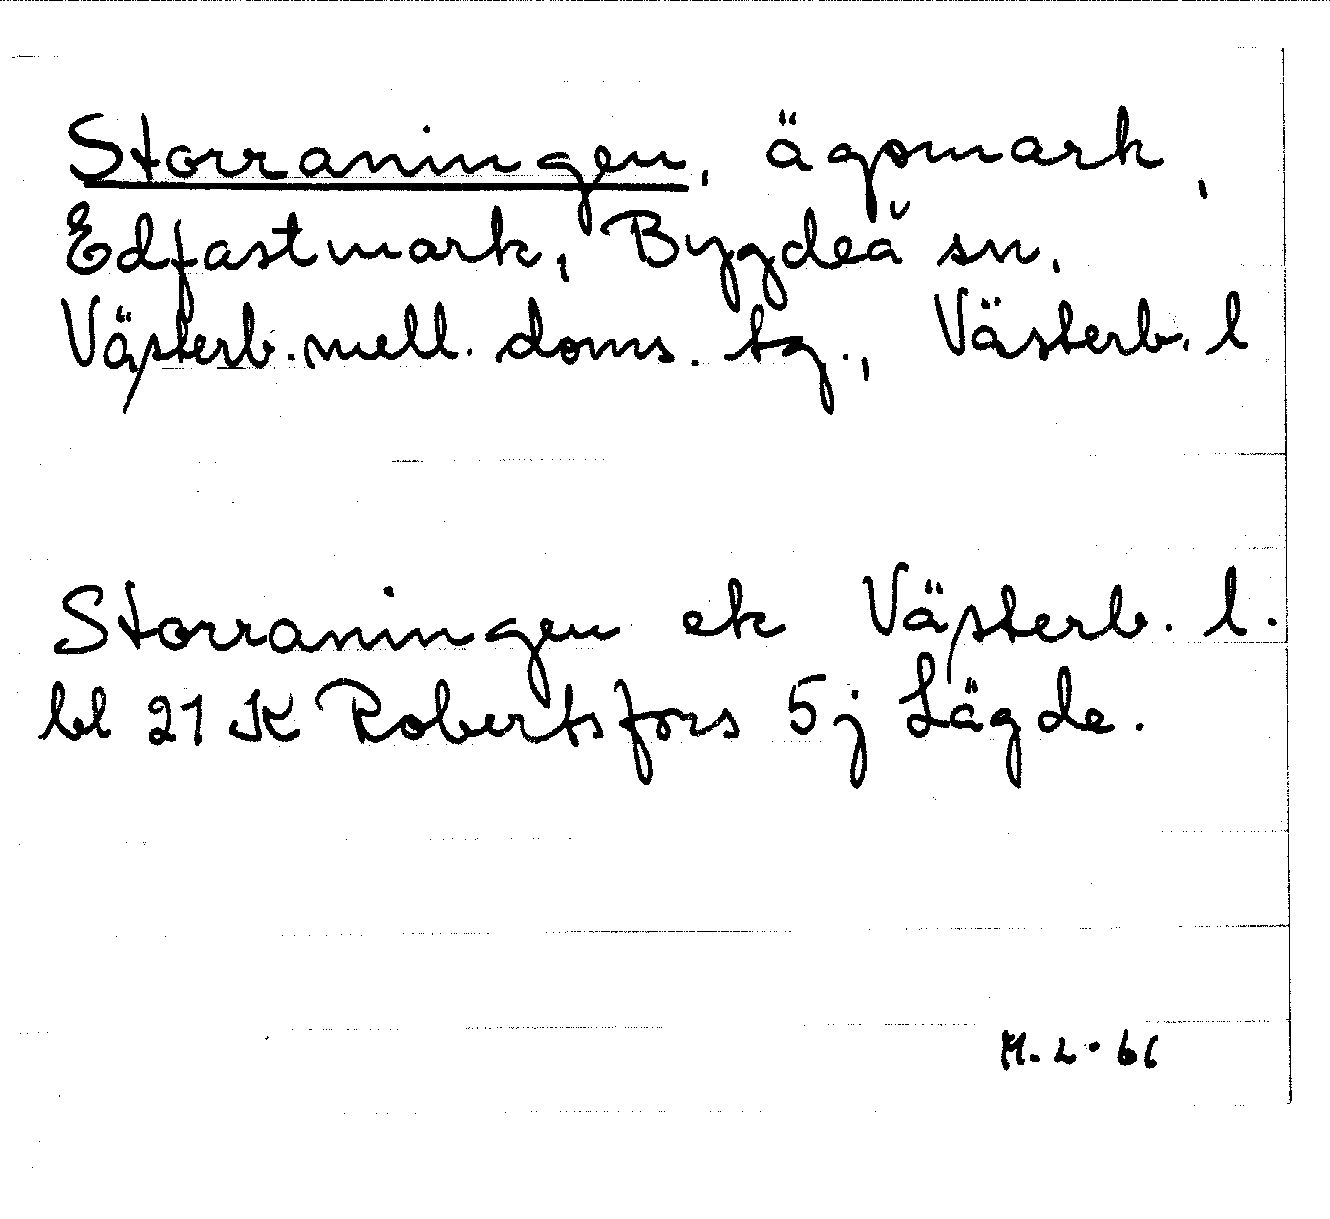 Storraningen, ägomark,
Edfastmark, Bygdeå sn,
Västerb. mell. doms. tg., Västerb. l
Storraningen ek Västerb. l.
bl 21 K Robertsfors 5j Lägde.
M. L. 66